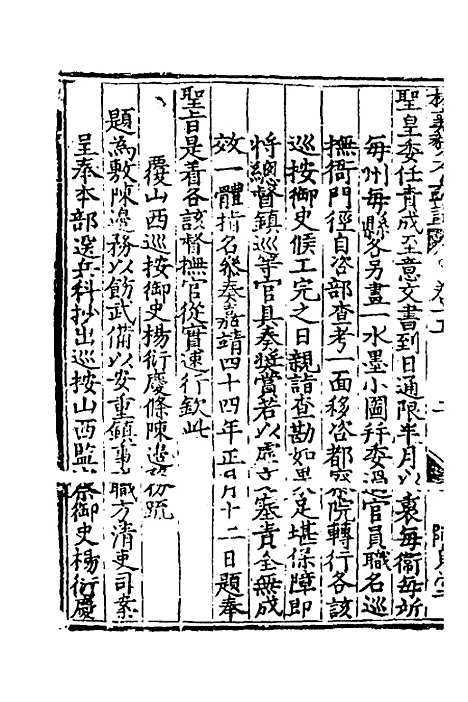 聖皇委任責成至意文書到日通限半月以裏每衛每所
每州每縣各另畫一水墨小圖并委過官員職名巡
撫衙門徑自咨部查考一面移咨都察院轉行各該
巡按御史候工完之日親詣查勘如果足堪保障即
將總督鎮巡等官具奏獎賞若以虛文塞責全無成
效一體指名參奏嘉靖四十四年正月十二日題奉
聖旨是着各該督撫官從實速行欽此
覆山西巡按御史楊衍慶條陳邊務疏
題為敷陳邊務以飭武備以安重鎮事職方清吏司案
呈奉本部送兵科抄出巡按山西監察御史楊衍慶